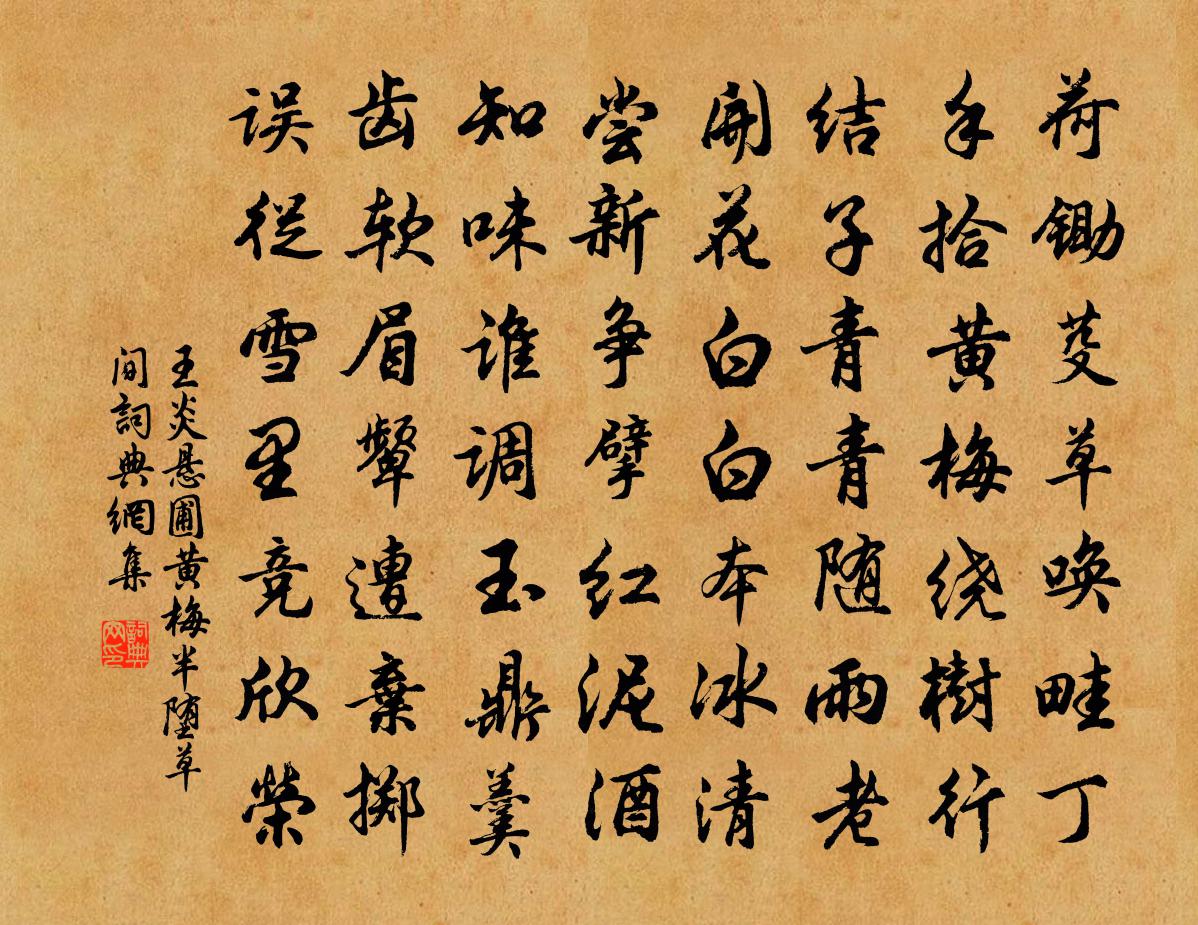 荷锄芟草唤畦丁
手拾黄梅绕樹行
结子青青随雨老
開花白白本冰清
尝新争擘红泥酒
知味谁调玉鼎羹
齿软眉颦遭棄掷
误從雪里竞欣榮
王炎悬圃黄梅半堕草
间詞典網集
詞典网印